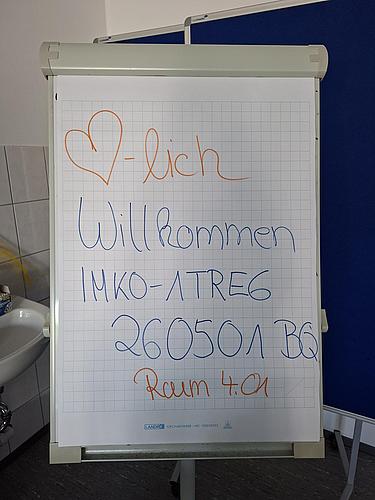 ♡-lich
Willkommen
IMKO-1TREG
260501 BQ
Raum 4.01
LANDRÉ